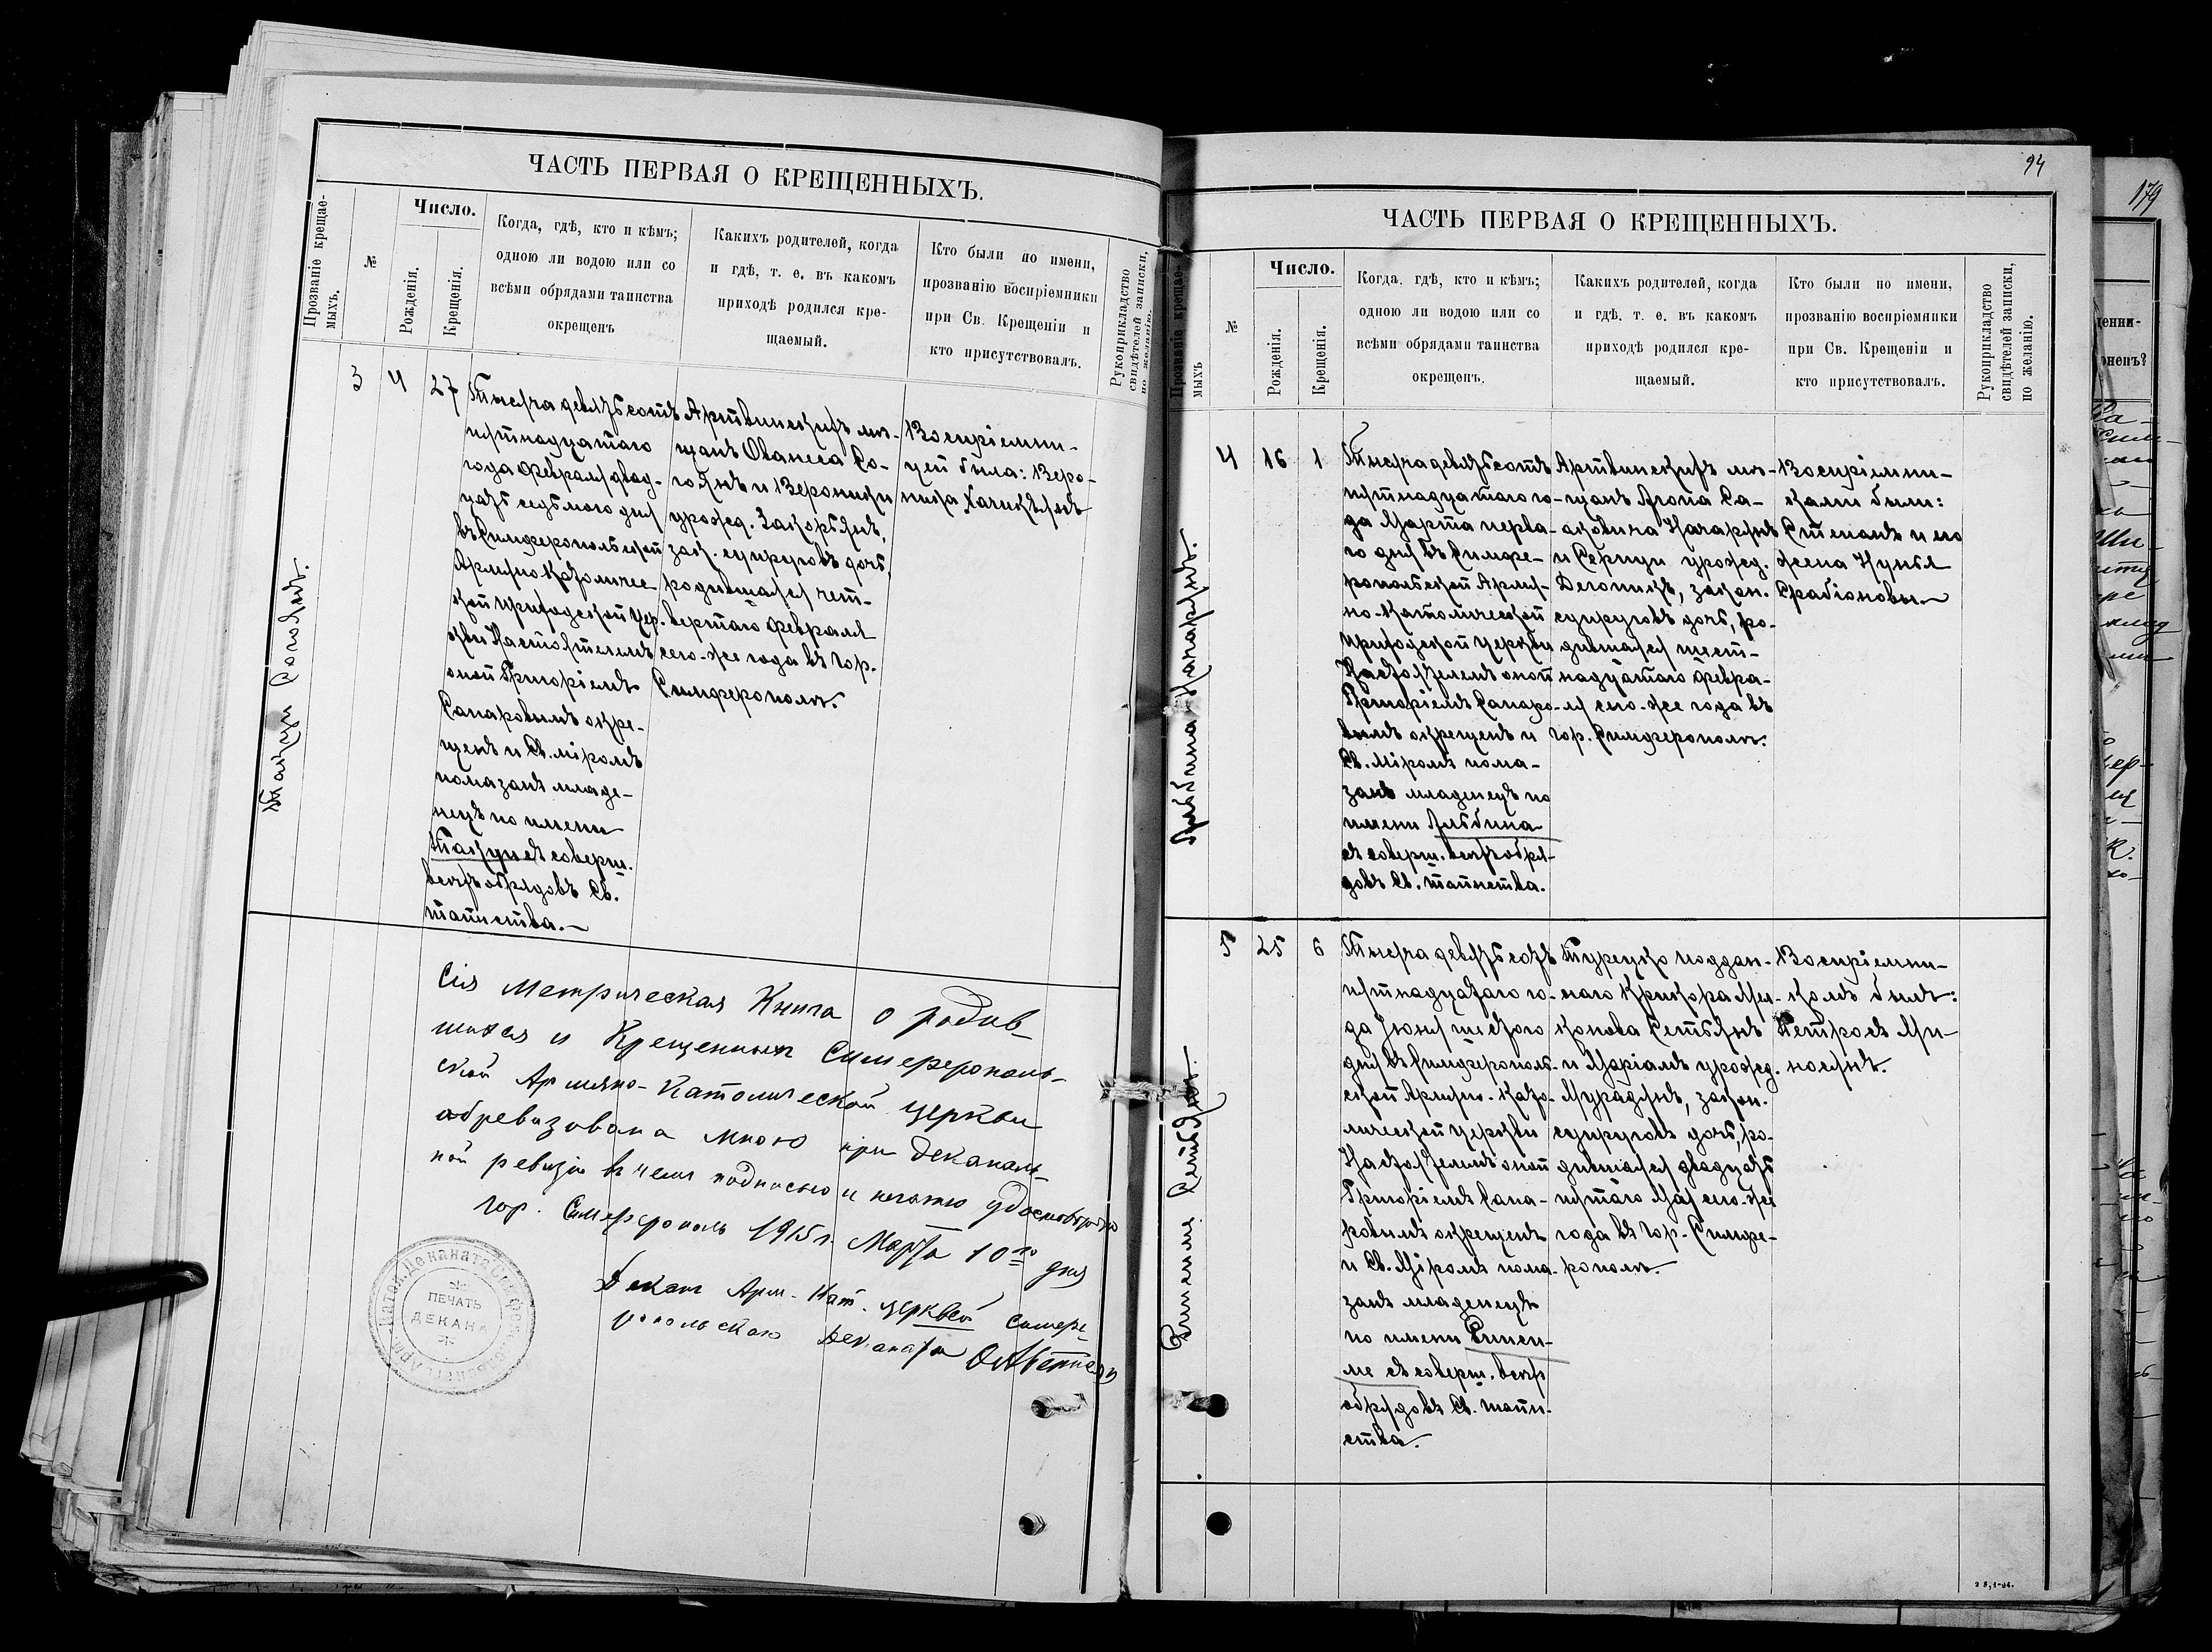 ЧАСТЬ ПЕРВАЯ О КРЕЩЕННЫХЪ.
Прозваніе крещае-
мыхъ.
№
Число.
Рожденія.
Крещенія.
Когда, гдѣ, кто и кѣмъ;
одною ли водою или со
всѣми обрядами таинства
окрещенъ
Какихъ родителей, когда
и гдѣ, т. е. въ какомъ
приходѣ родился кре-
щаемый.
Кто были по имени,
прозванію воспріемники
при Св. Крещеніи и
кто присутствовалъ.
Рукоприкладство
свидѣтелей записки,
по желанію.
3
4
27
Тысяча девятьсотъ
пятнадцатаго
года Февраля двад-
цать седьмого дня
въ Симферопольской
Армяно Католичес
кой приходской цер.
кви Настоятелемъ
оной Григоріемъ
Сапаровымъ окре-
щенъ и Св. міромъ
помазанъ младе-
нецъ по имени
съ соверш.
всѣхъ обрядовъ Св.
таинства.—
Артвинскихъ мѣ-
щанъ Ованеса Со-
гоянъ и Вероники
урожд. Закорьянъ,
зак. супруговъ дочь,
родившаяся чет-
вертаго Февраля
сего-же года въ Гор.
Симферополѣ.
Воспріемни-
цей была: Веро-
ника Хачикьянъ
Сія Метрическая Книга о родив-
шихся и Крещенныхъ Симферополь-
ской Армяно-Католической церкви
обревизована мною при деканаль-
ной ревизіи въ чемъ подписью и печатью удостовѣряю
Гор. Симферополь 1915 г. Марта 10го дня
Деканъ Арм.-Кат. церквей Симфе-
ропольскаго Деканата
ПЕЧАТЬ
ДЕКАНА
94
ЧАСТЬ ПЕРВАЯ О КРЕЩЕННЫХЪ.
Прозваніе крещае-
мыхъ
№
Число.
Рожденія.
Крещенія.
Когда, гдѣ, кто и кѣмъ;
одною ли водою или со
всѣми обрядами таинства
окрещенъ.
Какихъ родителей, когда
и гдѣ, т. е. въ какомъ
приходѣ родился кре-
щаемый.
Кто были по имени,
прозванію воспріемники
при Св. Крещеніи и
кто присутствовалъ.
Рукоприкладство
свидѣтелей записки,
по желанію.
Альбина Качарянъ.
4
16
1
Тысяча девятьсотъ
пятнадцатаго го-
да Марта перва-
го дня въ Симфе-
ропольской Армя-
но-Католической
приходской церкви
Настоятелемъ оной
Григоріемъ Сапаро-
вымъ окрещенъ и
Св. Міромъ пома-
занъ младенецъ по
имени Альбина
съ соверш. всѣхъ обря-
довъ Св. таинства.
Артвинскихъ мѣ-
щанъ Агопа Са-
аковича Качарянъ
и Серпуи урожд.
Дегоникъ, закон.
супруговъ дочь, ро-
дившаяся шест-
надцатаго Февра-
ля сего-же года въ
гор. Симферополѣ.
Воспріемни-
ками были:
Степанъ и его
жена Нунья
Срабіоновы.—
Рипсиме Сетьянъ.
5
25
6
Тысяча девятьсотъ
пятнадцатаго го-
да Іюня шестого
дня въ Симферополь-
ской Армяно-Като-
лической церкви
Настоятелемъ оной
Григоріемъ Сапа-
ровымъ окрещенъ
и Св. Міромъ пома-
занъ младенецъ
по имени Рипси-
ме съ соверш. всѣхъ
обрядовъ Св. таин-
ства.
Турецко поддан-
наго Крикора Мел-
конова Сетьянъ
и Маріамъ урожд.
Мурадянъ, закон.
супруговъ дочь, ро-
дившаяся двадцать
пятаго Мая сего-же
года въ Гор. Симфе-
рополѣ.
Воспріемни-
комъ былъ:
Петросъ Ми-
носянъ.
179